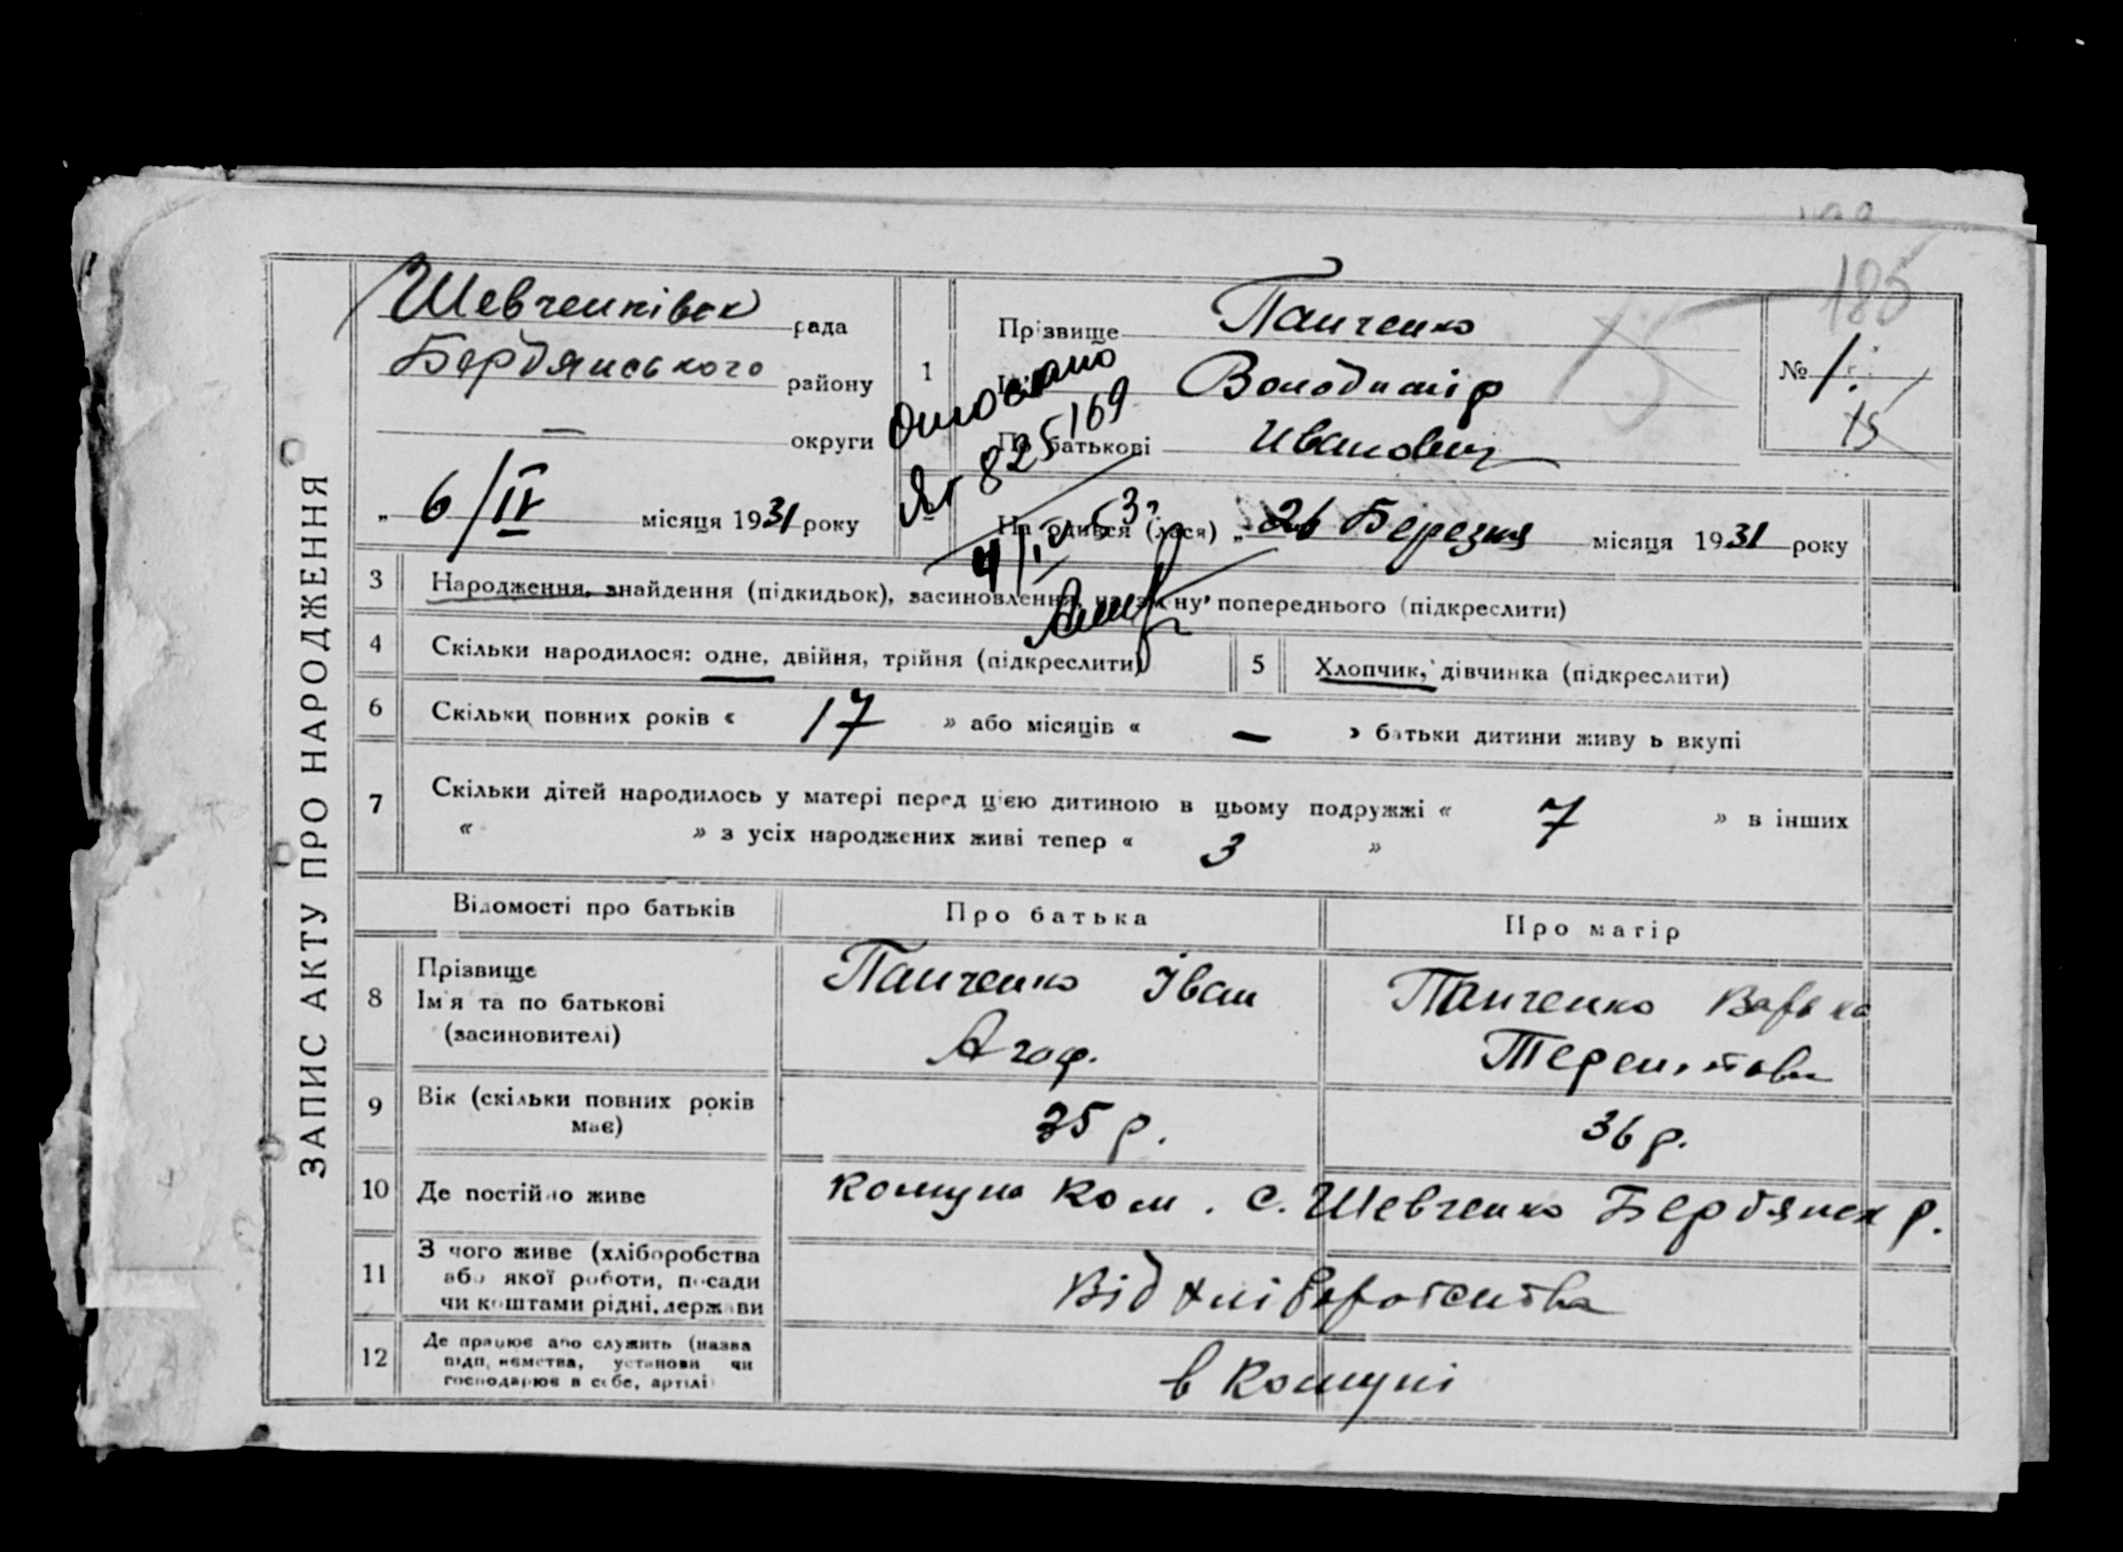 185
ЗАПИС АКТУ ПРО НАРОДЖЕННЯ
Шевченківск рада
Бердянського району
— округи
„ 6/IV місяця 1931 року
1
Прізвище Панченко
Володимір
По батькові Иванович
№ 1.
15
15
825169
На одився (лася) „ 26 Березня місяця 1931 року
3 Народження, знайдення (підкидьок), засиновлення, попереднього (підкреслити)
4 Скільки народилося: одне, двійня, трійня (підкреслити)
5 Хлопчик, дівчинка (підкреслити)
6 Скільки повних років « 17 » або місяців « — » батьки дитини живу ь вкупі
7 Скільки дітей народилось у матері перед цією дитиною в цьому подружжі « 7 » в інших
« » з усіх народжених живі тепер « 3 »
Відомості про батьків Про батька Про матір
8 Прізвище
Ім'я та по батькові
(засиновителі)
Панченко Іван
Агаф.
Панченко Варька
9 Вік (скільки повних років
має)
35 р. 36 р.
10 Де постійно живе Комуна Ком. с. Шевченко Бердянск р.
11 З чого живе (хліборобства
або якої роботи, посади
чи коштами рідні, держави
Від хліборобства
12 Де працює або служить (назва
підприємства, установи чи
господарює в себе, артілі
в комуні